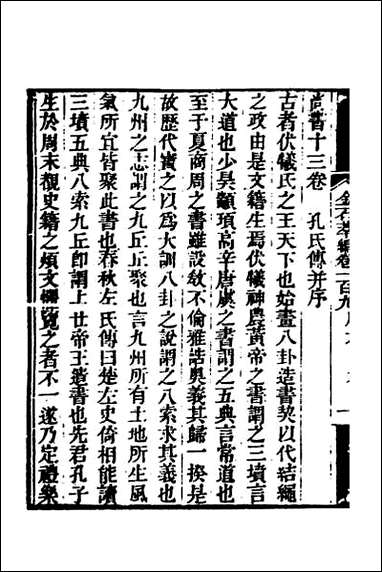 尚書十三卷　孔氏傳并序
古者伏犧氏之王天下也始畫八卦造書契以代結繩
之政由是文籍生焉伏犧神農黃帝之書謂之三墳言
大道也少昊顓頊高辛唐虞之書謂之五典言常道也
至于夏商周之書雖設教不倫雅誥奧義其歸一揆是
故歷代寶之以為大訓八卦之說謂之八索求其義也
九州之志謂之九丘丘聚也言九州所有土地所生風
氣所宜皆聚此書也春秋左氏傳曰楚左史倚相能讀
三墳五典八索九丘即謂上世帝王遺書也先君孔子
生於周末覩史籍之煩文懼覽之者不一遂乃定禮樂
金石萃編卷一百九